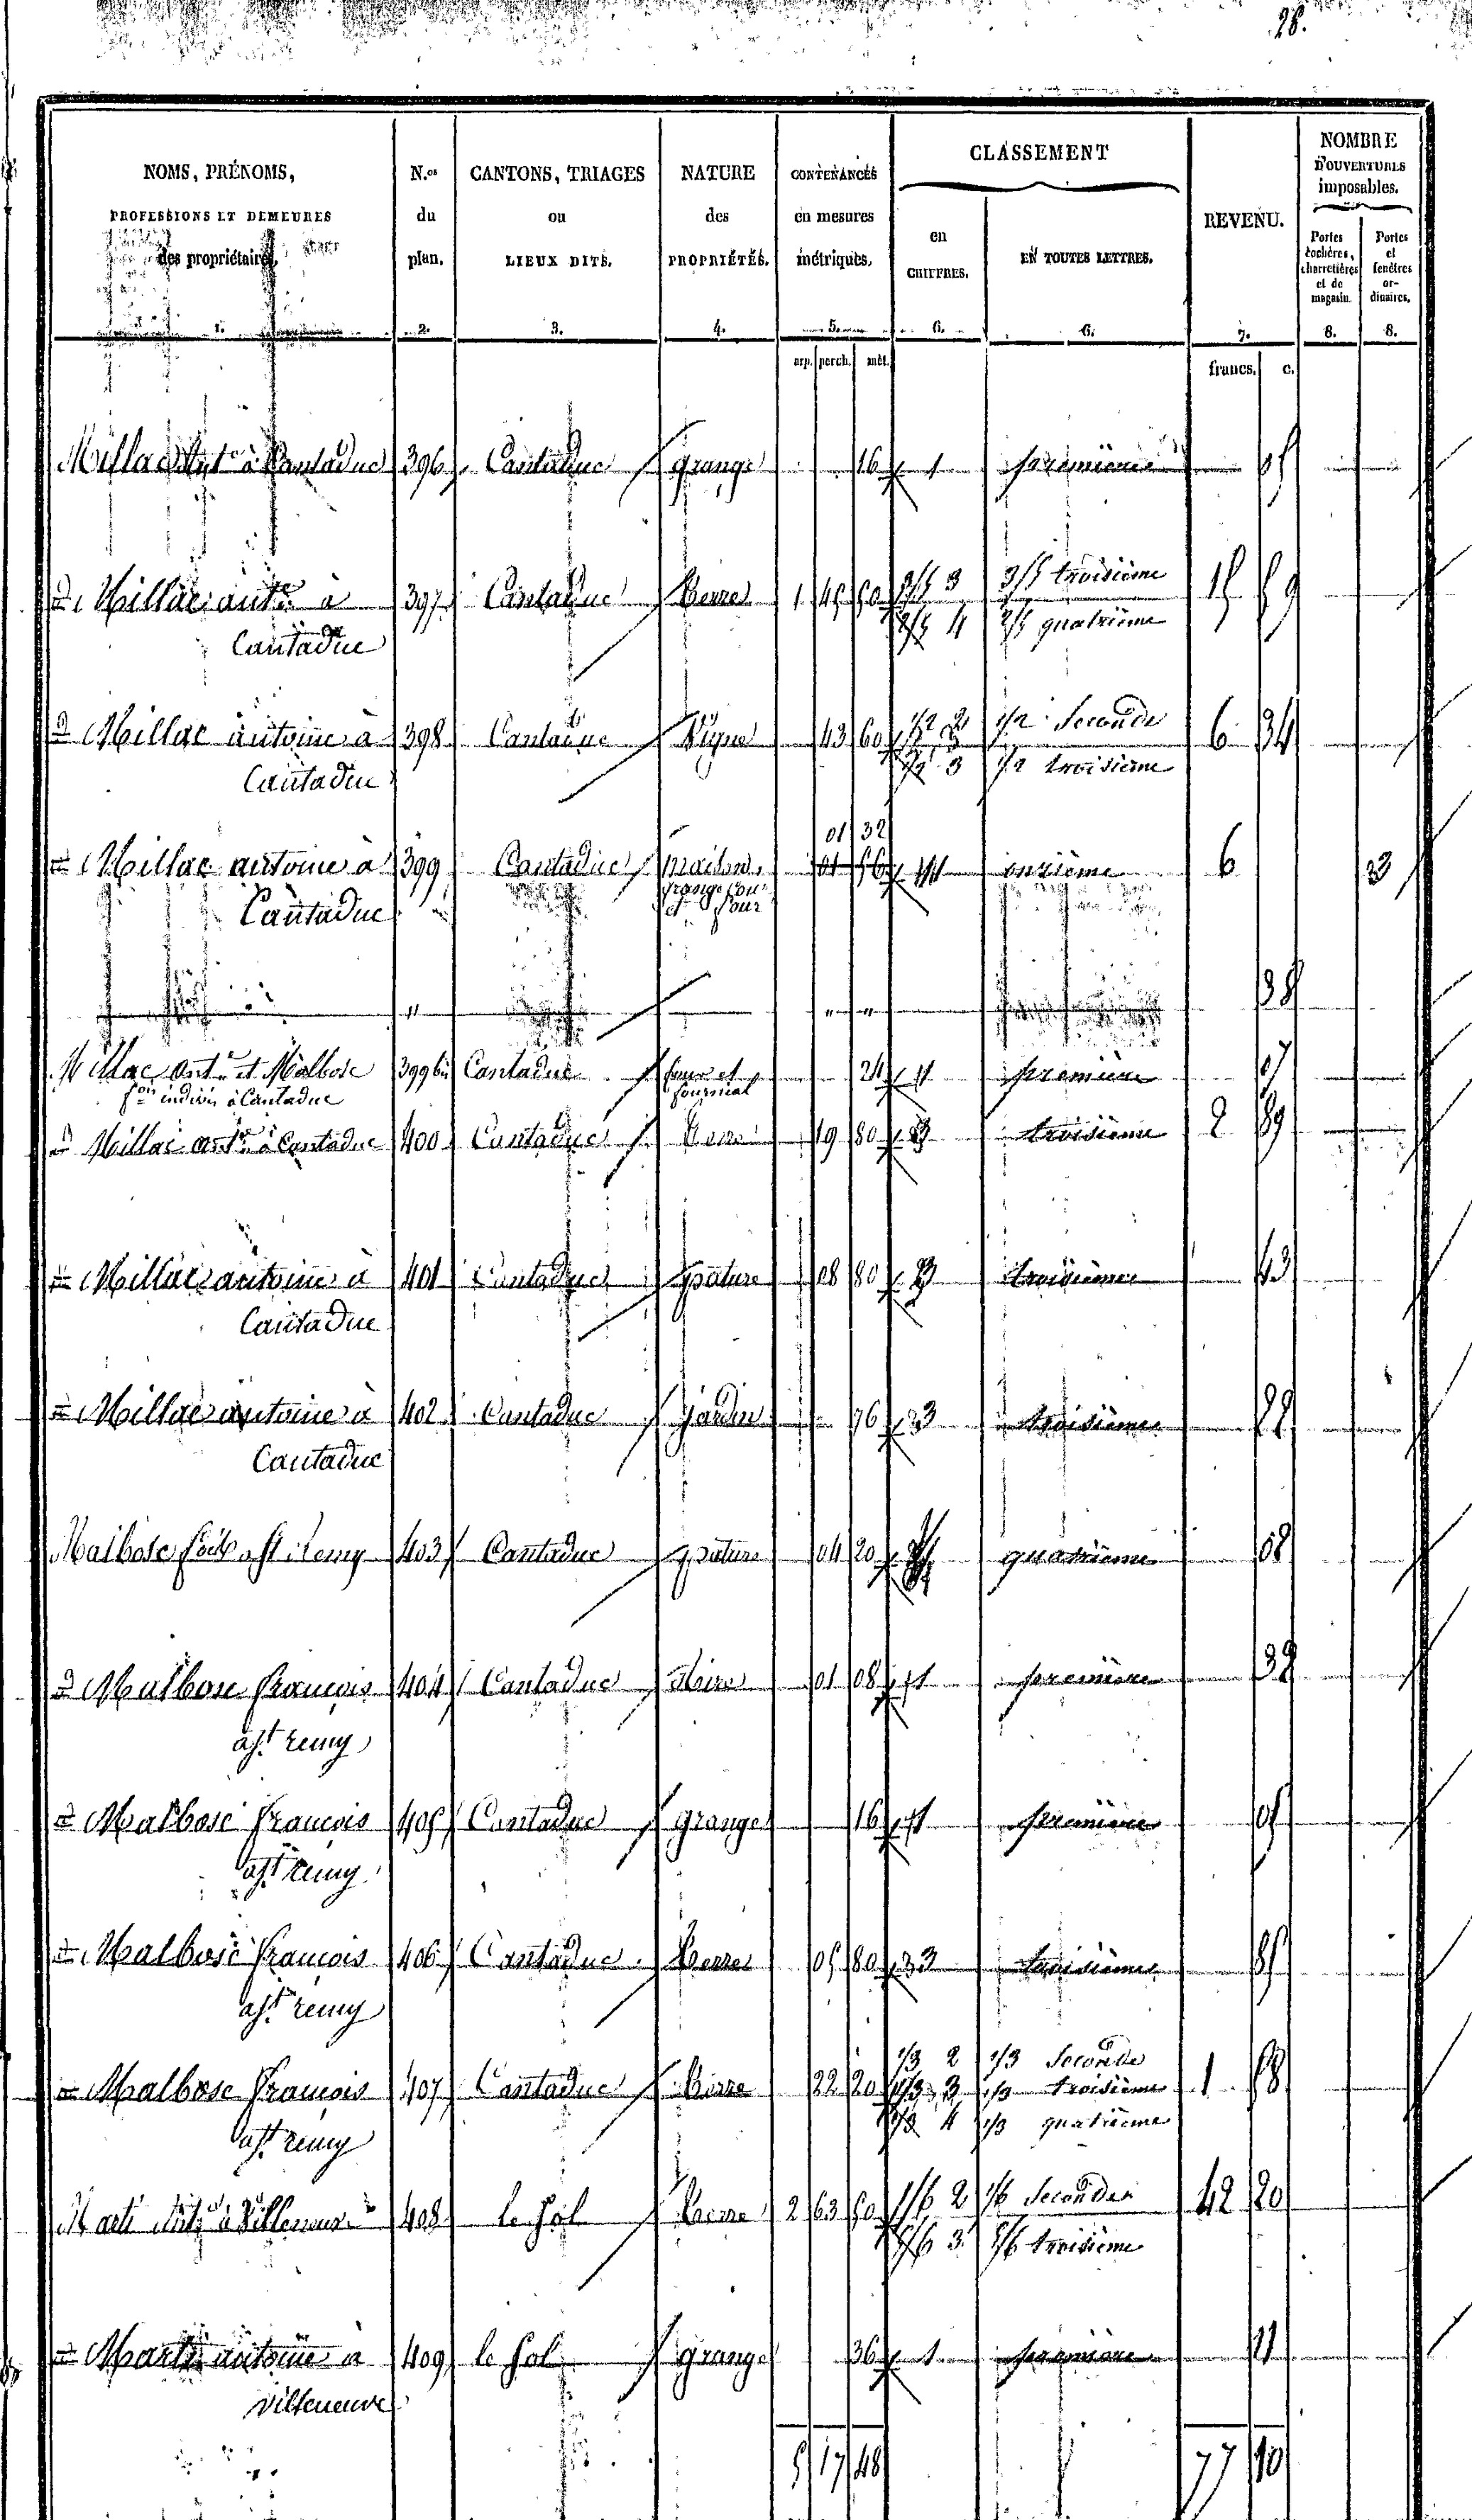 28.
NOMS, PRÉNOMS, PROFESSIONS ET DEMEURES des propriétaires. 1.
N.os du plan. 2.
CANTONS, TRIAGES ou LIEUX DITS. 3.
NATURE des PROPRIÉTÉS. 4.
CONTENANCES en mesures métriques. 5.
CLASSEMENT
en CHIFFRES. 6.
EN TOUTES LETTRES. 6.
REVENU. 7.
NOMBRE D'OUVERTURES imposables.
Portes cochères, charretières et de magasin. 8.
Portes et fenêtres ordinaires. 8.
arp. perch. mèt. francs. c.
Millac Antne à Cantaduc 396 Cantaduc grange 16 1 première 05
d Millac antne à 397 Cantaduc Terre 1 45 50 3/5 3 3/5 troisième 15 59
Cantaduc 2/5 4 2/5 quatrième
d Millac antoine à 398 Cantaduc Vigne 43 60 1/2 2 1/2 Seconde 6 34
Cantaduc 1/2 3 1/2 troisième
01 32
d Millac antoine à 399 Cantaduc maison, onzième 6 3
Cantaduc grange et four
" " " 38
Millac Antne et Malbosc 399 bis Cantaduc four et 24 1 première 07
fois indivis à Cantaduc fournial
d Millac antne à Cantaduc 400 Cantaduc Terre 19 80 3 troisième 2 89
d Millac antoine à 401 Cantaduc pature 08 80 3 troisième 43
Cantaduc
d Millac antoine à 402 Cantaduc jardin 76 3 troisième 22
Cantaduc
Malbosc fois à St. remy 403 Cantaduc pature 04 20 4 quatrième 08
d Malbosc francois 404 Cantaduc 01 08 1 première 32
à St. remy
d Malbosc francois 405 Cantaduc grange 16 1 première 05
à St. remy
d Malbosc francois 406 Cantaduc Terre 05 80 3 troisième 85
à St. remy
d Malbosc francois 407 Cantaduc Terre 22 20 1/3 2 1/3 Seconde 1 58
à St. remy 1/3 3 1/3 troisième
1/3 4 1/3 quatrième
Marti antne à Villeneuve 408 le Sol Terre 2 63 50 1/6 2 1/6 Seconde 42 20
5/6 3 5/6 troisième
d Marti antoine à 409 le Sol grange 36 1 première 11
villeneuve
5 17 48 77 10